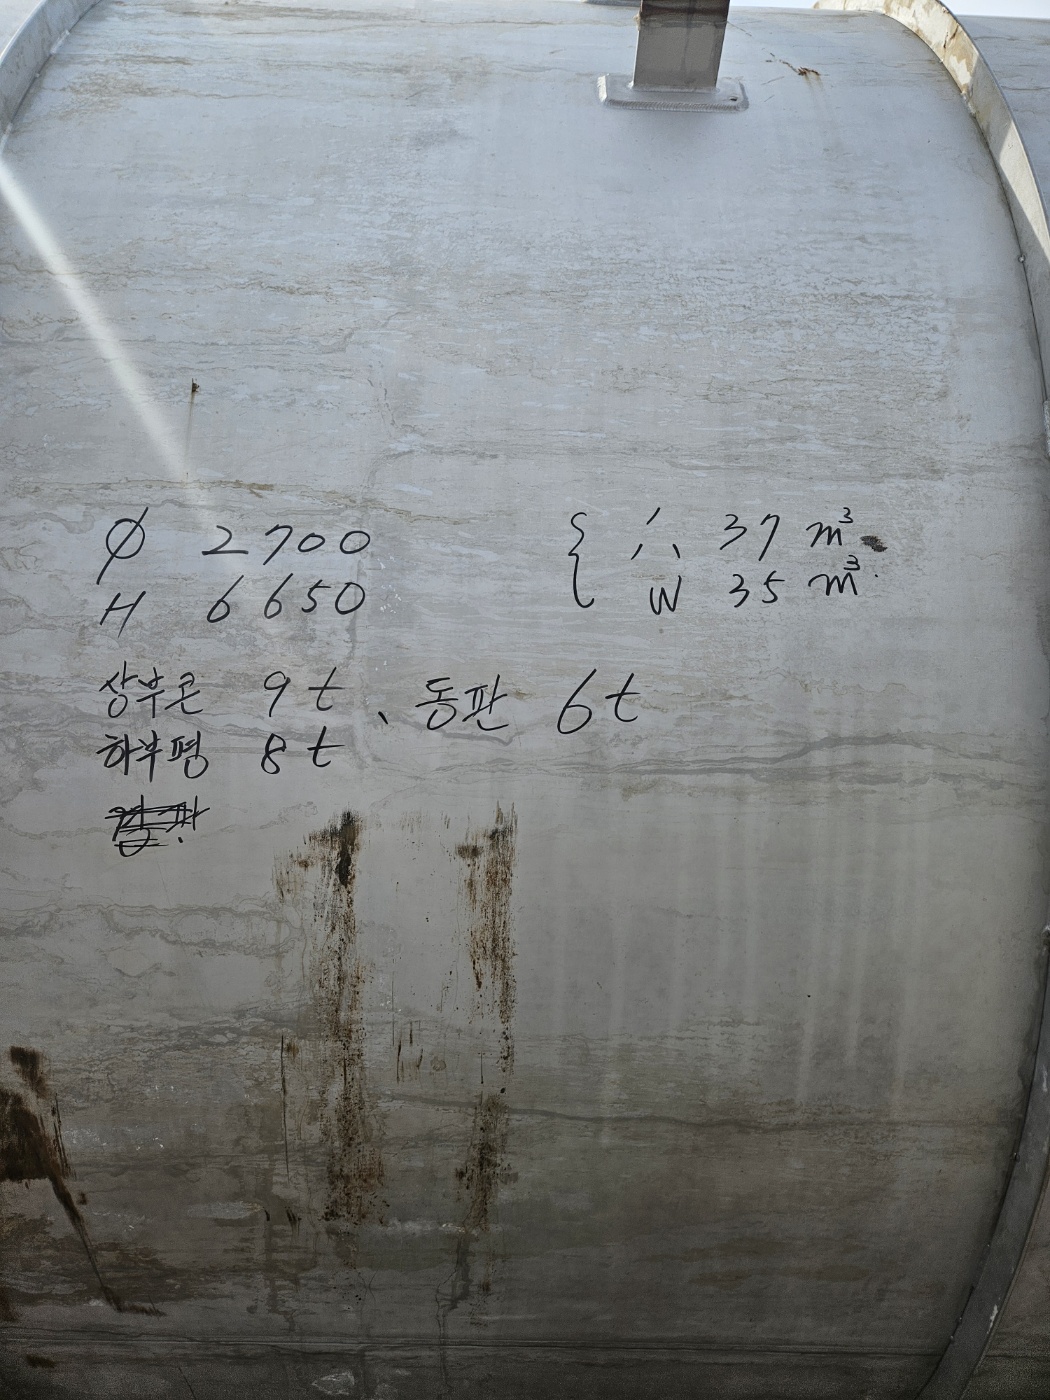 Ø 2700
H 6650
{ 八 37 m³
W 35 m³
상부콘 9t、동판 6t
하부평 8t